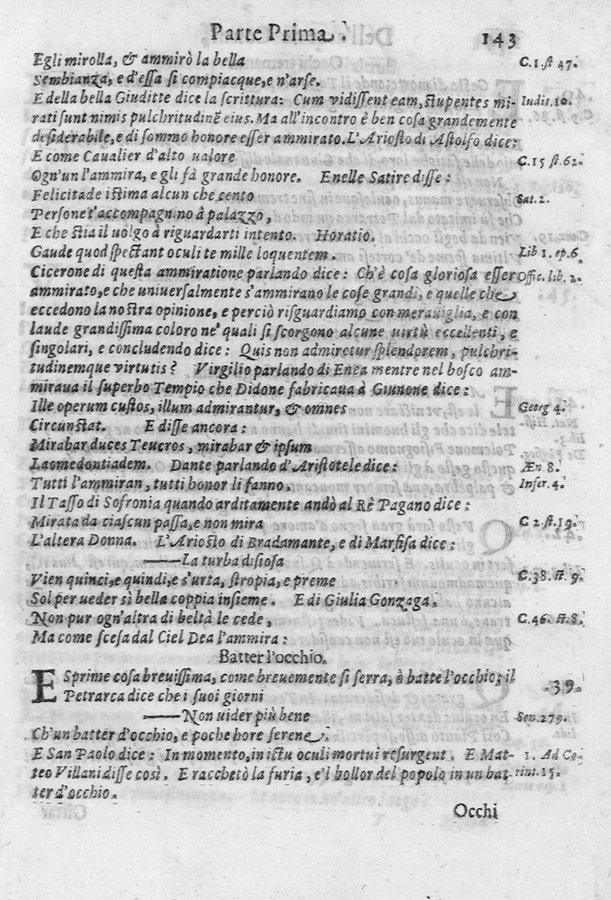 Parte Prima. 143
Egli mirolla, & ammirò la bella C. 1. st 47.
Sembianza, e d'essa si compiacque, e n'arse.
E della bella Giuditte dice la scrittura: Cum vidissent eam, stupentes mi- Iudit. 10.
rati sunt nimis pulchritudinē eius. Ma all'incontro è ben cosa grandemente
desiderabile, e di sommo honore esser ammirato. L'Ariosto di Astolfo dice:
E come Caualier d'alto ualore C. 15 st. 62.
Ogn'un l'ammira, e gli fà grande honore. E nelle Satire disse:
Felicitade istima alcun che cento Sat. 2.
Persone t'accompagnino à palazzo,
E che stia il uolgo à riguardarti intento. Horatio.
Gaude quod spectant oculi te mille loquentem. Lib 1. ep. 6.
Cicerone di questa ammiratione parlando dice: Ch'è cosa gloriosa esser Offic. lib. 2.
ammirato, e che uniuersalmente s'ammirano le cose grandi, e quelle che
eccedono la nostra opinione, e perciò risguardiamo con merauiglia, e con
laude grandissima coloro ne' quali si scorgono alcune uirtù eccellenti, e
singolari, e concludendo dice: Quis non admiretur splendorem, pulchri-
tudinemque virtutis? Virgilio parlando di Enea mentre nel bosco am-
miraua il superbo Tempio che Didone fabricaua à Giunone dice:
Ille operum custos, illum admirantur, & omnes Georg 4.
Circunstat. E disse ancora:
Mirabar duces Teucros, mirabar & ipsum
Laomedontiadem. Dante parlando d'Aristotele dice: Æn 8.
Tutti l'ammiran, tutti honor li fanno. Infer. 4.
Il Tasso di Sofronia quando arditamente andò al Rè Pagano dice:
Mirata da ciascun passa, e non mira C 2. st. 19.
L'altera Donna. L'Ariosto di Bradamante, e di Marfisa dice:
——La turba disiosa
Vien quinci, e quindi, e s'urta, stropia, e preme C. 38. st. 9.
Sol per ueder sì bella coppia insieme. E di Giulia Gonzaga.
Non pur ogn'altra di beltà le cede, C. 46. st. 8.
Ma come scesa dal Ciel Dea l'ammira:
Batter l'occhio.
Esprime cosa breuissima, come breuemente si serra, ò batte l'occhio; il
Petrarca dice che i suoi giorni 39.
——Non uider più bene Son. 279.
Ch'un batter d'occhio, e poche hore serene.
E San Paolo dice: In momento, in ictu oculi mortui resurgent. E Mat- 1. Ad Co-
teo Villani disse così. E racchetò la furia, e'l bollor del popolo in un bat- rint. 15.
ter d'occhio.
Occhi